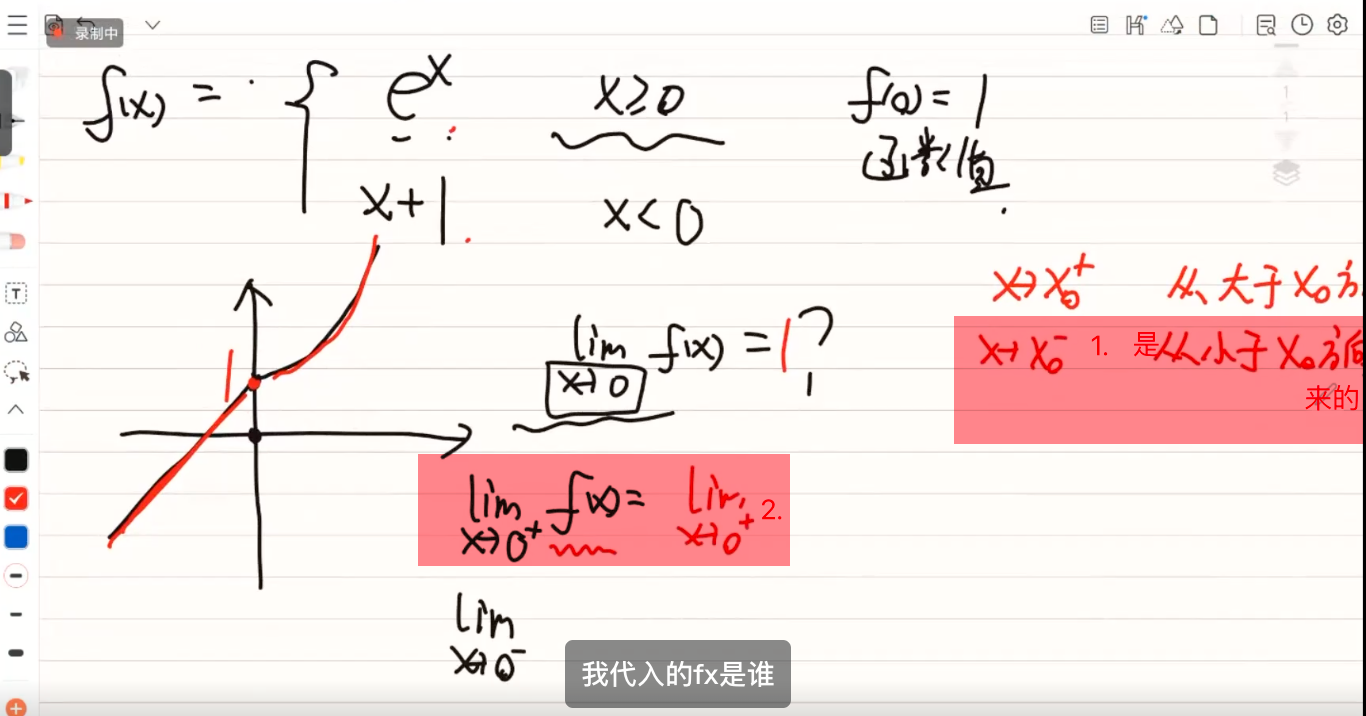 录制中
f(x) = { e^x x≥0
x+1 x<0
f(0) = 1
函数值
x→x₀⁺ 从大于x₀方
x→x₀⁻ 1. 是从小于x₀方向
来的
1
lim f(x) = 1 ?
x→0
lim f(x) = lim 2.
x→0⁺ x→0⁺
lim
x→0⁻
我代入的fx是谁
1
1
T